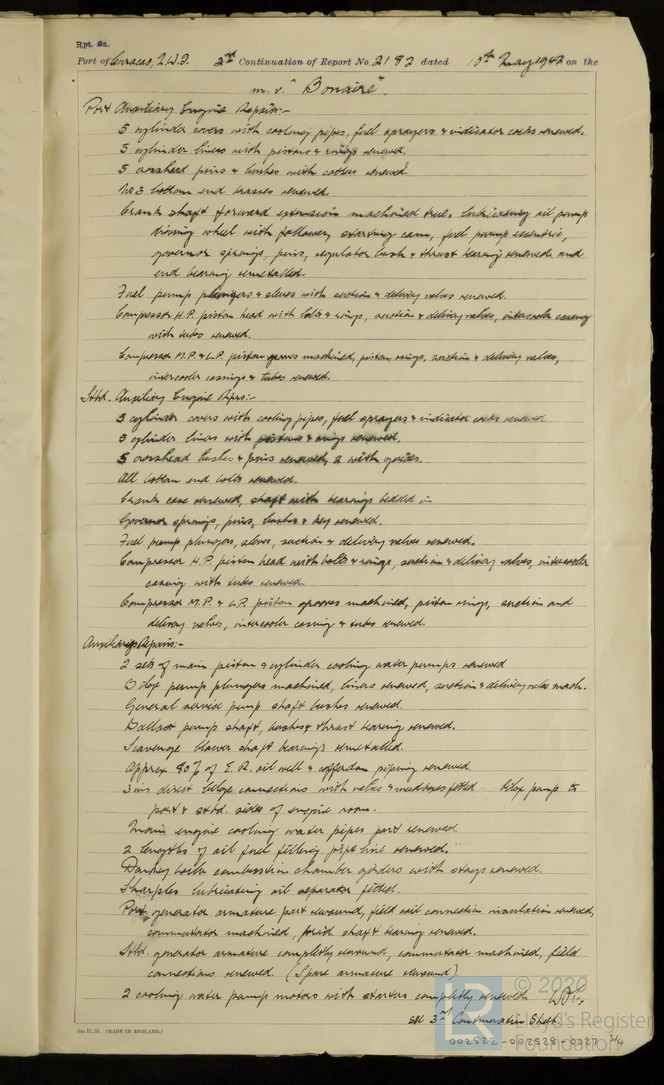 Rpt. 9a.
Port of Curacao, N.W.I. 2nd Continuation of Report No. 2182 dated 10th May 1942 on the
m.v. "Bonaire".
Port Auxiliary Engine Repairs:-
5 cylinder covers with cooling pipes, fuel sprayers & indicator cocks renewed.
5 cylinder liners with pistons & rings renewed.
5 crosshead pins & bushes with cotters renewed.
No 3 bottom end brasses renewed.
Crank shaft forward extension machined true, lubricating oil pump
driving wheel with follower, starting cam, fuel pump eccentric,
governor springs, pins, regulator bush & thrust bearing renewed and
end bearing remetalled.
Fuel pump plungers & sleves with suction & delivery valves renewed.
Compressor H.P. piston head with bolts & rings, suction & delivery valves, intercooler casing
with tubes renewed.
Compressor M.P. & L.P. piston grooves machined, piston rings, suction & delivery valves,
intercooler casings & tubes renewed.
Stbd. Auxiliary Engine Rprs:-
5 cylinder covers with cooling pipes, fuel sprayers & indicator cocks renewed
5 cylinder liners with pistons & rings renewed.
5 crosshead bushes & pins renewed, 2 with guides.
All bottom end bolts renewed.
Crank case renewed, shaft with bearings bedded in
Governor springs, pins, bushes & key renewed.
Fuel pump plungers, sleves, suction & delivery valves renewed.
Compressor H.P. piston head with bolts & rings, suction & delivery valves, intercooler
casing with tubes renewed.
Compressor M.P. & L.P. piston grooves machined, piston rings, suction and
delivery valves, intercooler casing & tubes renewed.
Auxiliary Repairs:-
2 sets of main piston & cylinder cooling water pumps renewed
Bilge pump plungers machined, liners renewed, suction & delivery valves mach.
General service pump shaft bushes renewed.
Ballast pump shaft, bushes & thrust bearing renewed.
Scavenge blower shaft bearings remetalled.
Approx 80% of E.R. oil well & cofferdam piping renewed.
3 ins direct bilge connections with valves & mudboxes fitted pump to
port & stbd. sides of engine room.
Main engine cooling water pipes part renewed.
2 lengths of oil fuel filling pipe line renewed.
Donkey boiler combustion chamber girders with stays renewed.
Sharples lubricating oil separator fitted.
Port generator armature part rewound, field coil connection insulation renewed,
commutator machined, shaft & bearing renewed.
Stbd. generator armature completly rewound, commutator machined, field
connections renewed. (Spare armature rewound)
2 cooling water pump motors with starters completly renewed
see 3rd Continuation Sheet
5m 11,36. (MADE IN ENGLAND.)
© 2020
LR Lloyd's Register
Foundation
002522-002528-0027 3/4